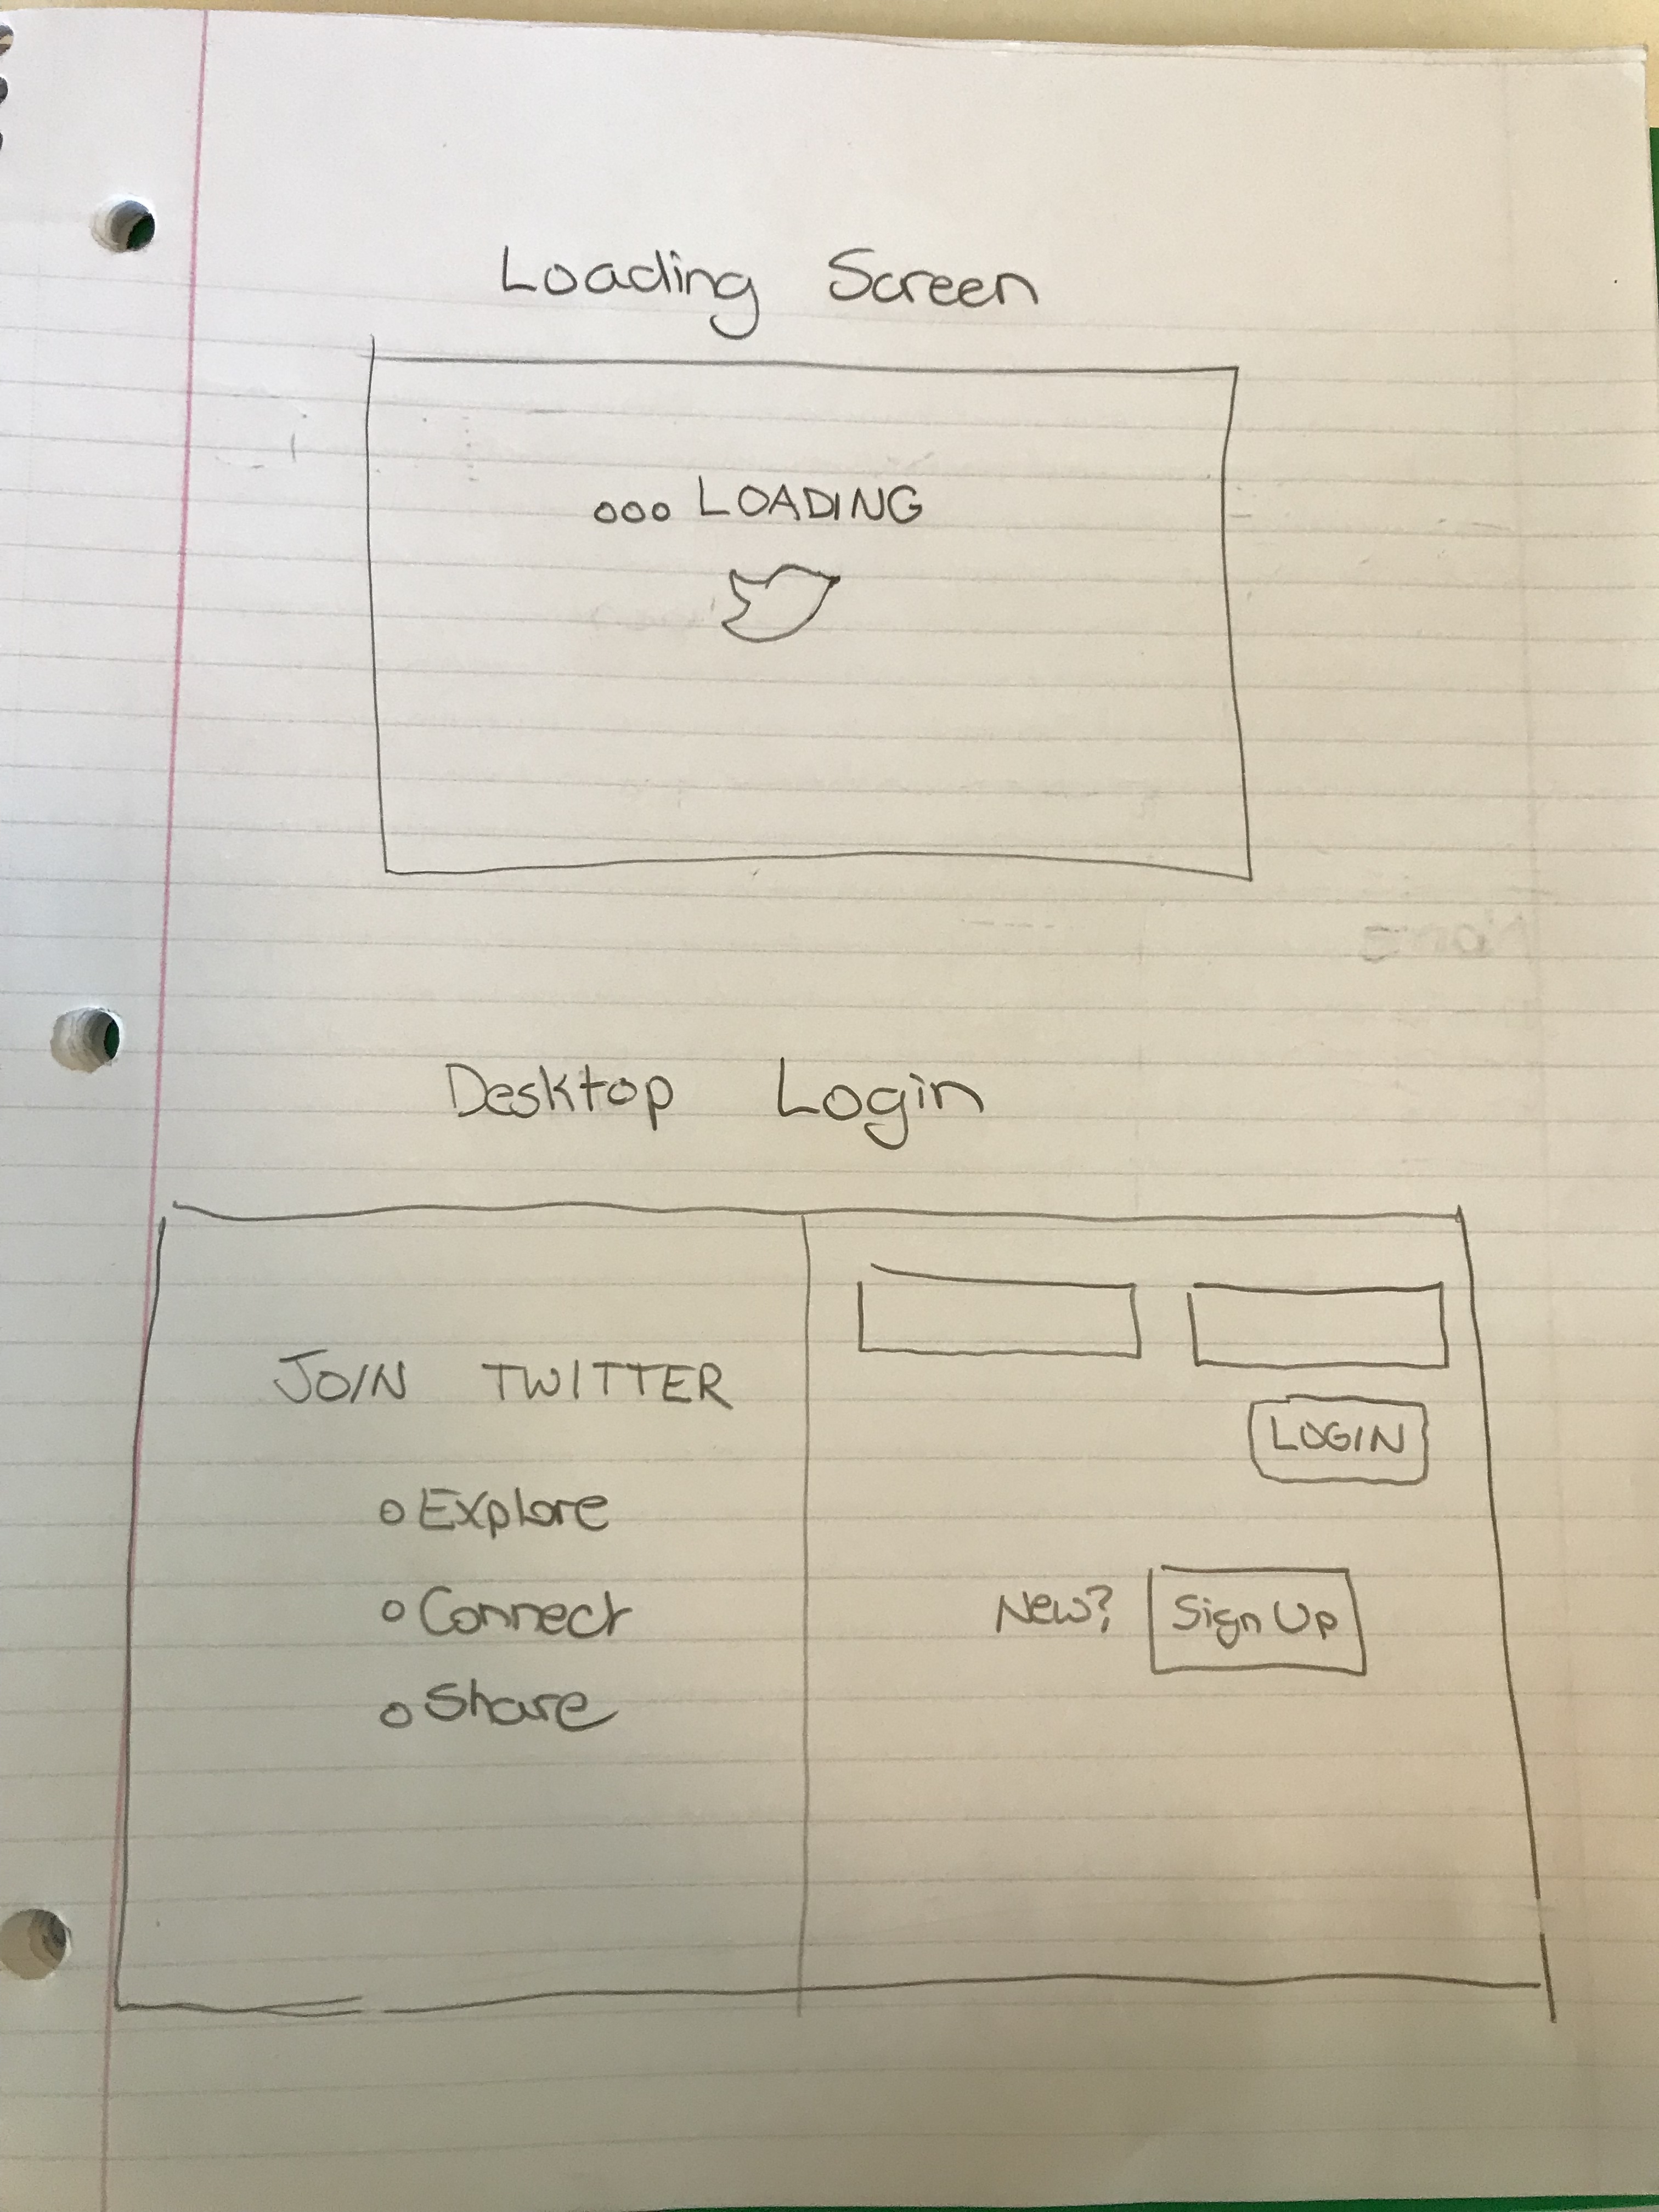 Loading Screen
ooo LOADING
Desktop Login
JOIN TWITTER
o Explore
o Connect
o Share
LOGIN
New? Sign Up